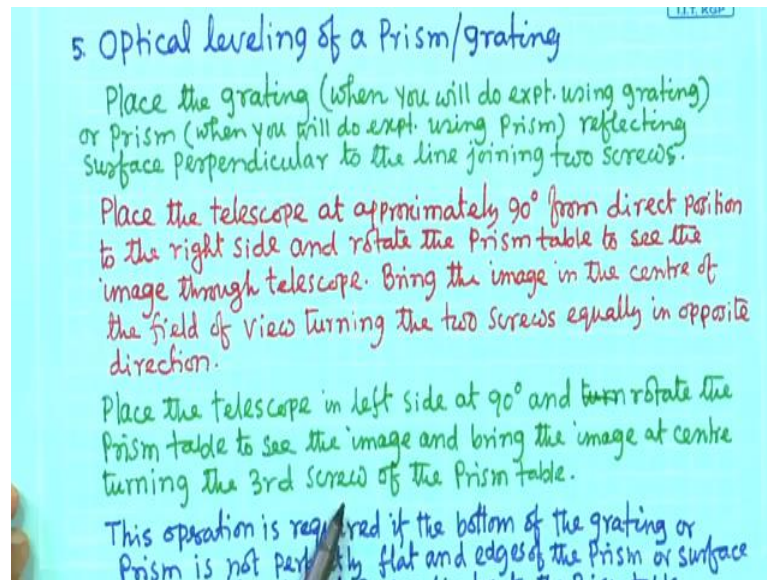 I.I.T. KGP
5. Optical leveling of a Prism/grating
Place the grating (when you will do expt. using grating)
or Prism (when you will do expt. using Prism) reflecting
Surface perpendicular to the line joining two screws.
Place the telescope at approximately 90° from direct position
to the right side and rotate the Prism table to see the
image through telescope. Bring the image in the centre of
the field of view turning the two screws equally in opposite
direction.
Place the telescope in left side at 90° and turn rotate the
Prism table to see the image and bring the image at centre
turning the 3rd screw of the Prism table.
This operation is required if the bottom of the grating or
Prism is not perfectly flat and edges of the Prism or surface